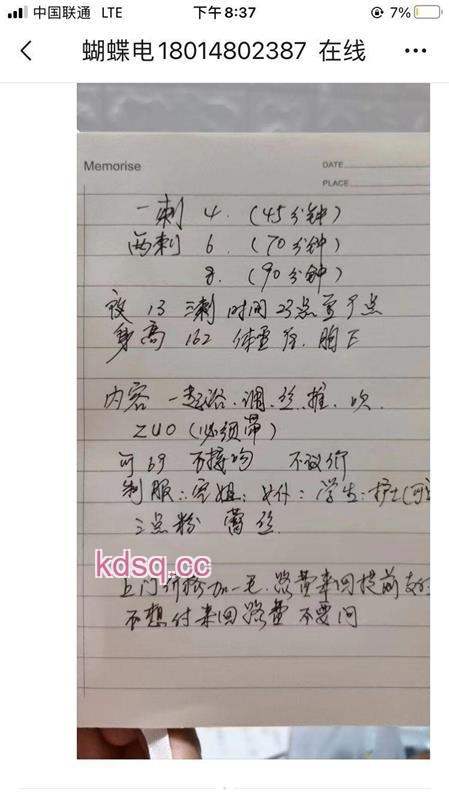 中国联通 LTE 下午8:37 7%
蝴蝶电18014802387 在线
Memorise
DATE
PLACE
一刺 4. (45分钟)
两刺 6. (70分钟)
8. (90分钟)
夜 13 三刺 时间 23点至7点
身高 162 体重 胸E
内容 一起浴. 调. 丝. 推. 吹
ZUO (必须带)
可69 不接吻 不议价
制服: 空姐: 女仆: 学生: 护士
三点粉 蕾丝
kdsq.cc
上门价格加一毛. 路费来回提前支付
不想付来回路费 不要问